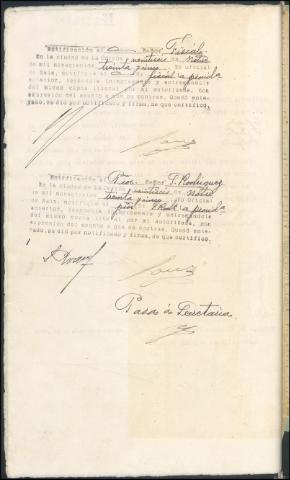 Notificación al Señor Fiscal
En la ciudad de La y veintiseis de
de mil novecientos treinta y cinco Yo Oficial
de Sala, notifiqué al Fiscal la provida
anterior, leyéndola íntegramente y entregándole
del mismo copia literal por mí autorizada, con
expresión del asunto a que se contrae. Quedó ente-
rado, se dió por notificado y firma, de que certifico.
Notificación al Pror. Señor F. Rodriguez
En la ciudad de veintiseis de
de mil novecientos treinta y cinco Yo Oficial
de Sala, notifiqué al pror. la provida
anterior, leyéndola íntegramente y entregándole
del mismo copia literal por mí autorizada, con
expresión del asunto a que se contrae. Quedó ente-
rado, se dió por notificado y firma, de que certifico.
Pasa á Secretaria